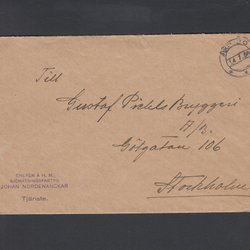 Till
Gustaf Piehls Bryggeri
A/B.
Götgatan 106
Stockholm
CHEFEN Å H. M.
JOHAN NORDENANCKAR
Tjänste.